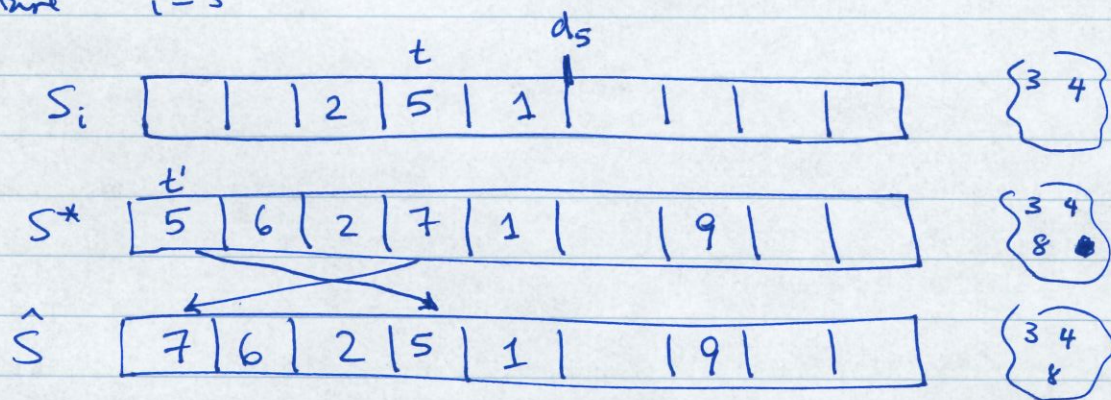 i = 5
t d₅
Sᵢ 2 5 1 3 4
t'
S* 5 6 2 7 1 9 3 4
8
Ŝ 7 6 2 5 1 9 3 4
8